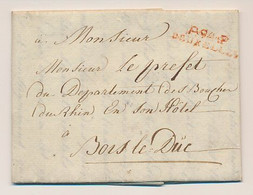 a Monsieur
Monsieur le prefet
du Departement des Bouches
du Rhin En son Hôtel
à
Bois le Düc